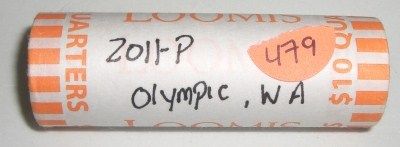 LOOMIS
QUARTERS
2011-P
479
Olympic, WA
$10 QU
LOOMIS